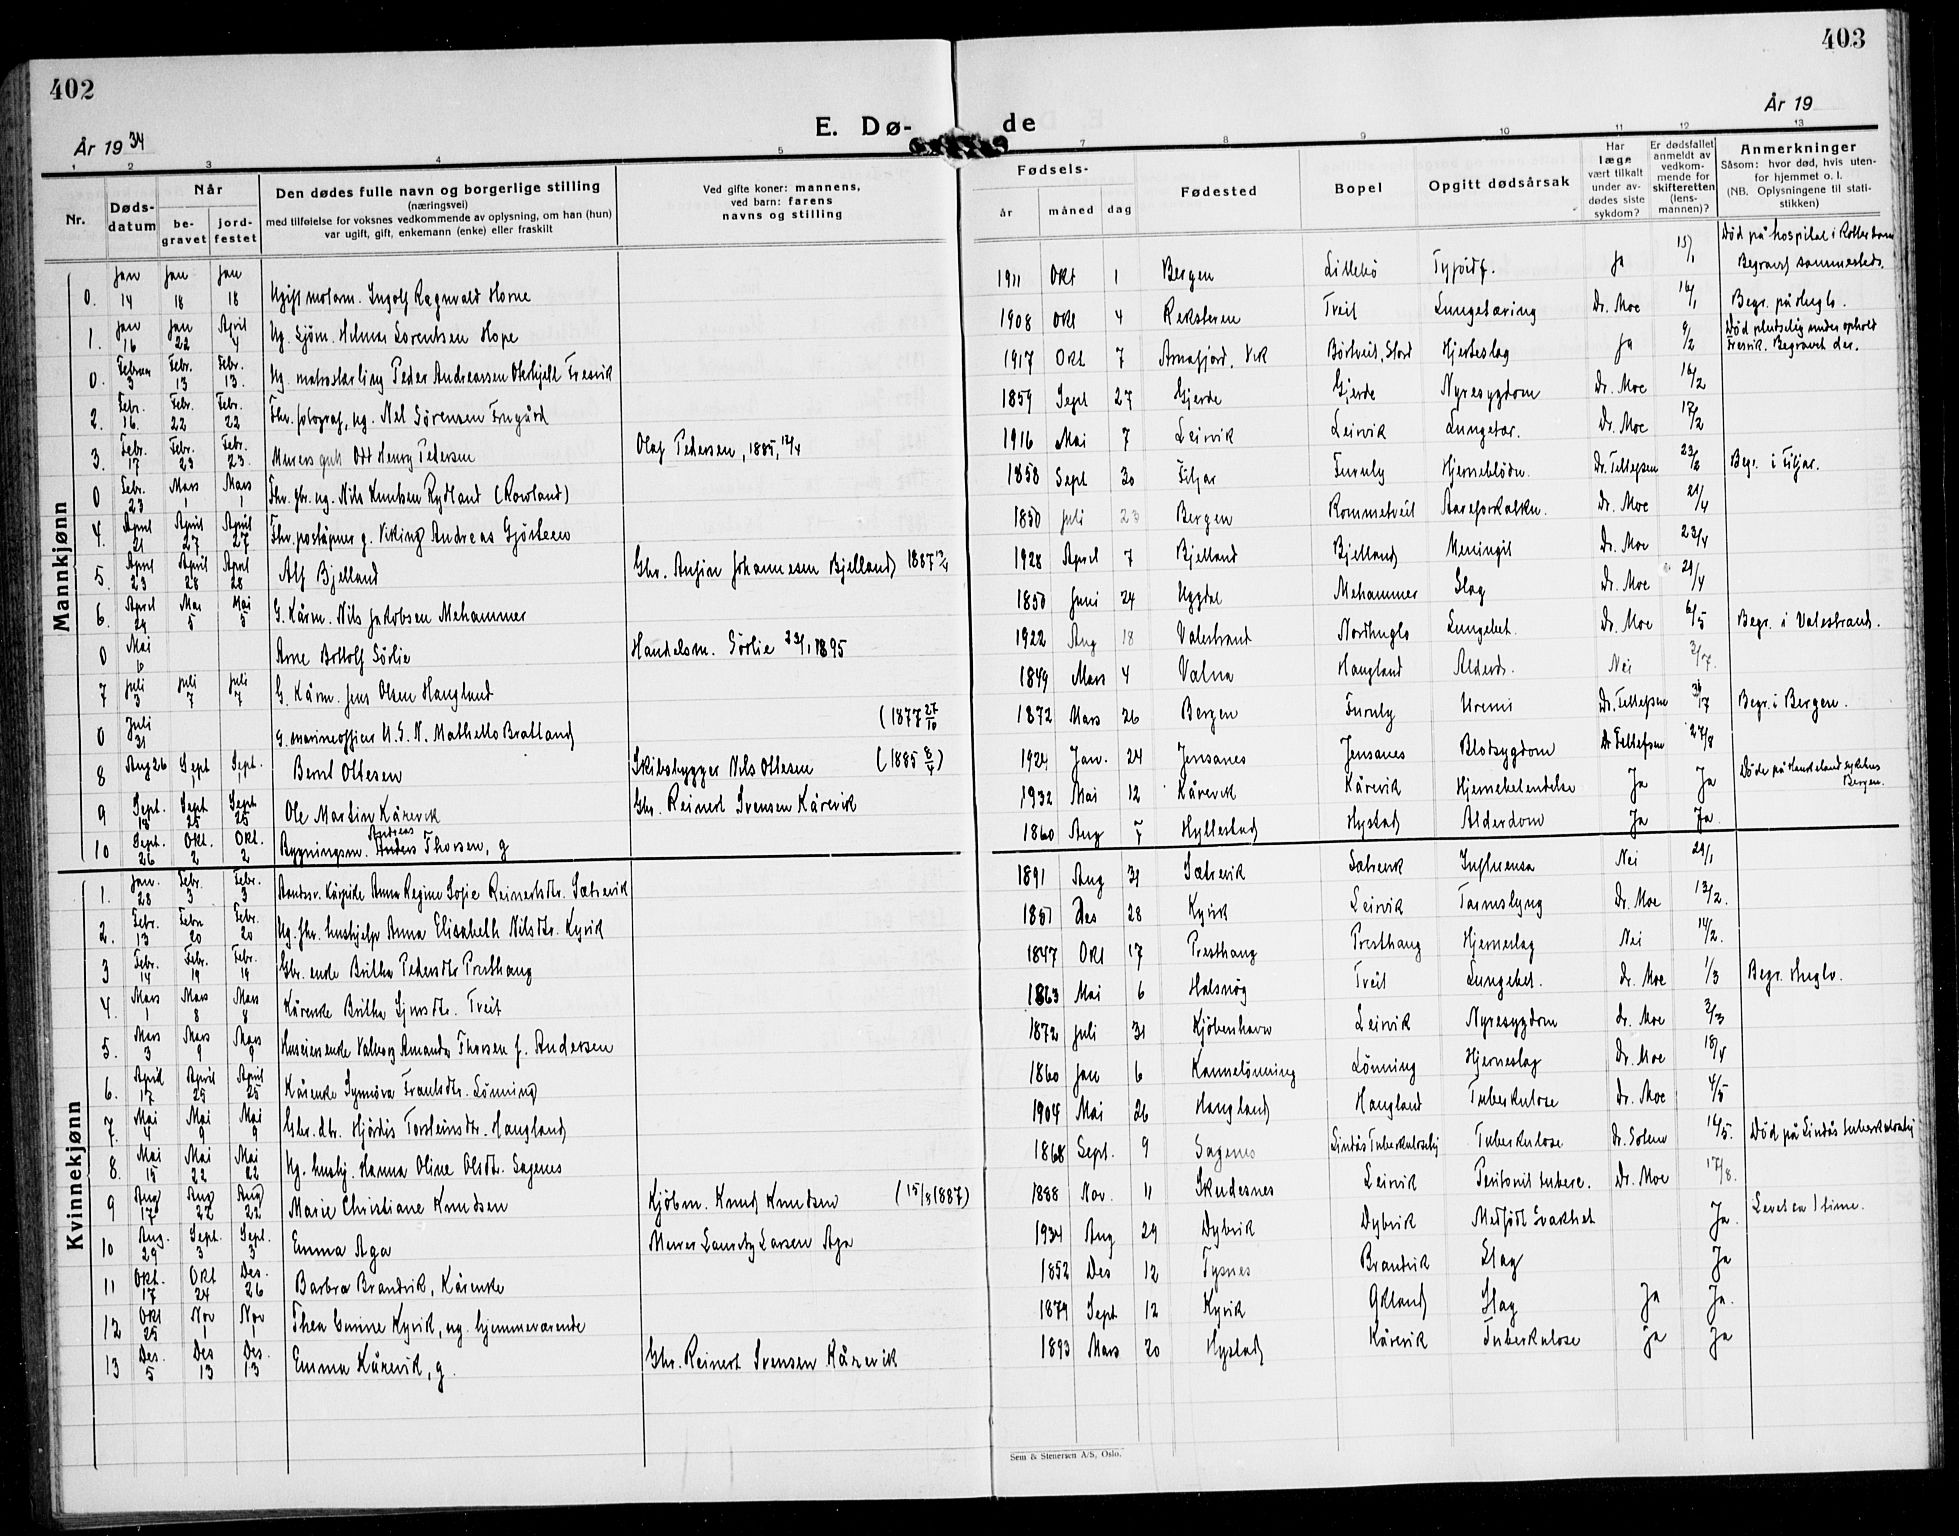 402
403
E. Dø-
de
År 1934
År 19
1 2 3 4 5
7 8 9 10 11 12 13
Nr.
Døds-
datum
Når
be-
gravet
jord-
festet
Den dødes fulle navn og borgerlige stilling
(næringsvei)
med tilføielse for voksnes vedkommende av oplysning, om han (hun)
var ugift, gift, enkemann (enke) eller fraskilt
Ved gifte koner: mannens,
ved barn: farens
navns og stilling
Fødsels-
år måned dag
Fødested
Bopel
Opgitt dødsårsak
Har
læge
vært tilkalt
under av-
dødes siste
sykdom?
Er dødsfallet
anmeldt av
vedkom-
mende for
skifteretten
(lens-
mannen)?
Anmerkninger
Såsom: hvor død, hvis uten-
for hjemmet o. l.
(NB. Oplysningene til stati-
stikken)
Mannkjønn
0. Jan 14 Jan 18 Jan 18 Ugift Ingolf Ragnvald Horne 1911 Okt 1 Bergen Lillebö Tyfoidf. Ja 15/1 Död på hospital i Rotterdam Begravet sammesteds.
1. Jan 16 Jan 22 April 4 Ug. Sjöm. Hilmar Sorentsen Hope 1908 Okt 4 Reksteren Tveit Lungetæring Dr. Moe 16/1 Begr. på Huglo.
0. Februar 3 Febr. 13 Febr. 13. Ug. Peder Andreassen Fresvik 1917 Okt 7 Arnafjord, Vik Börtveit, Stord Hjerteslag Ja 9/2 Död plutselig under ophold Fresvik. Begravet der.
2. Febr. 16. Febr. 22 Febr. 22 Fhv. fotograf, ug. Nel Sörensen 1859 Sept 27 Gjerde Gjerde Nyresygdom Dr. Moe 16/2
3. Febr. 17 Febr. 23 Febr. 23. Murers gutt Odd Henry Pedersen Olaf Pedersen, 1885, 12/4 1916 Mai 7 Leirvik Leirvik Lungetær. Dr. Moe 17/2
0 Febr. 23 Mars 1 Mars 1 Fhv. gbr. ug. Nils Knutsen Rydland (Rowland) 1858 Sept 30 Fitjar Furuly Hjerneblödn. Dr. Tellefsen 23/2 Begr. i Fitjar.
4. April 21 April 27 April 27 Fhv. poståpner g. Viking Andreas 1850 Juli 23 Bergen Rommetveit Aareforkalkn. Dr. Moe 21/4
5. April 23 April 28 April 28 Alf Bjelland Gbr. Johannesen Bjelland 1928 April 7 Bjelland Bjelland Meningit Dr. Moe 23/4
6. April 29 Mai 5 Mai 5 G. Kårm. Nils Jakobsen Mehammer 1850 Juni 24 Uggdal Mehammer Slag Dr. Moe 29/4
0 Mai 6 Arne Bottolf Sörlie Handelsm. Sörlie 1895 1922 Aug 18 Valestrand Nordhuglo Lungebet. Dr. Moe 6/5 Begr. i Valestrand.
7 Juli 3 Juli 7 Juli 7 G. Kårm. Jens Olsen Haugland 1849 Mars 4 Valna Haugland Alderd. Nei 3/7.
0 Juli 31 G. marineofficer U. S. N. Bratland (1877 27/10 1872 Mars 26 Bergen Furuly Uremi Dr. Tellefsen Begr. i Bergen.
8 Aug 26 Sept 1 Sept. 1 Bernt Ottesen Skibsbygger Nils Ottesen (1885 8/4) 1924 Jan. 24 Jensanes Jensanes Blodsygdom Dr Tellefsen 27/8
9 Sept. 18 Sept 25 Sept 25 Ole Martin Kårevik Gbr. Reinert Svensen Kårevik 1932 Mai 12 Kårevik Kårevik Hjernebetendelse Ja Ja Döde på Haukeland sykehus Bergen.
10 Sept. 26 Okt. 2 Okt. 2 Bygningsm. Andreas Anders Thorsen, g 1860 Aug 7 Hyllestad Hystad Alderdom Ja Ja.
Kvinnekjønn
1. Jan. 28 Febr. 3 Febr. 3 Anna Regine Sofie Reinertsdtr. Sætrevik 1891 Aug 31 Sætrevik Sætrevik Influensa Nei 29/1
2. Febr. 13 Febr 20 Febr. 20 Ug. fhv. hushjelp Anna Elisabeth Nilsdtr. Kyvik 1851 Des 28 Kyvik Leirvik Tarmslyng Dr. Moe 13/2.
3 Febr. 14 Febr. 19 Febr. 19 Gbr. enke Britha Pedersdtr Presthaug 1847 Okt 17 Presthaug Presthaug Hjerneslag Nei 14/2.
4. Mars 1 Mars 8 Mars 8 Kårenke Britha Tveit 1863 Mai 6 Halsnöy Tveit Lungebet. Dr. Moe 1/3 Begr. Huglo.
5. Mars 3 Mars 9 Mars 9 Huseierenke Valborg Amanda Thorsen f. Andersen 1872 Juli 31 Kjöbenhavn Leirvik Nyresygdom Dr. Moe 3/3
6. April 17 April 25 April 25 Kårenke Synnöva Lönning 1860 Jan 6 Lönning Hjerneslag Dr. Moe 18/4
7. Mai 4 Mai 9 Mai 9 Gbr. dtr. Hjördis Torsteinsdtr. Haugland 1904 Mai 26 Haugland Haugland Tuberkulose Dr. Moe 4/5
8. Mai 15 Mai 22 Mai 22 Ug. hushj. Hanna Oline Olsdtr. Sagenes 1868 Sept. 9 Sagenes Lindås Tuberkulosehj Tuberkulose Dr. Solem 16/5. Död på Lindås tuberkulosehj
9 Aug 17 Aug 22 Aug 22 Marie Christiane Knudsen Kjöbm. Knud Knudsen (15/8 1887) 1888 Nov. 11 Skudesnes Leirvik Peritonit tuberc. Dr. Moe 17/8.
10 Aug. 29 Sept. 3 Sept. 3 Emma Aga Murer Larsen Aga 1934 Aug 29 Dybvik Dybvik Medfödt svakhet Ja. Levet en 1 time.
11 Okt. 17 Okt 24 Des. 26 Barbra Brandvik, Kårenke 1852 Des 12 Tysnes Brandvik Slag Ja
12 Okt 25 Nov 1 Nov 1 Thea Kyvik, ug. hjemmeværende 1879 Sept 12 Kyvik Okland Slag Ja Ja.
13 Des. 5 Des 13 Des. 13 Emma Kårevik, g. Gbr. Reinert Svensen Kårevik 1893 Mars 20 Hystad Kårevik Tuberkulose Ja Ja
Sem & Stenersen A/S, Oslo.